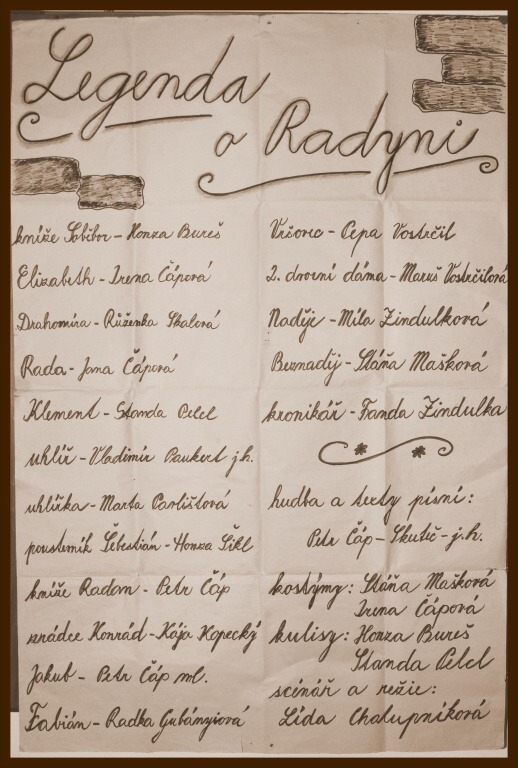 Legenda
o Radyni
kníže Soběbor - Honza Bureš
Elizabeth - Irena Čápová
Drahomíra - Růženka Skalová
Rada - Jana Čápová
Klement - Standa Pelcl
uhlíř - Vladimír Paukert j.h.
uhlířka - Marta Pavlištová
poustevník Šebestián - Honza Šikl
kníže Radom - Petr Čáp
zrádce Konrád - Kája Kopecký
Jakub - Petr Čáp ml.
Fabián - Radka Gubányiová
Vršovec - Pepa Vostrčil
2. dvorní dáma - Maruš Vostrčilová
Naděje - Míla Zindulková
Beznaděj - Stáňa Mašková
kronikář - Fanda Zindulka
hudba a texty písní:
Petr Čáp - Skuteč - j.h.
kostýmy: Stáňa Mašková
Irena Čápová
kulisy: Honza Bureš
Standa Pelcl
scénář a režie:
Lída Chalupníková